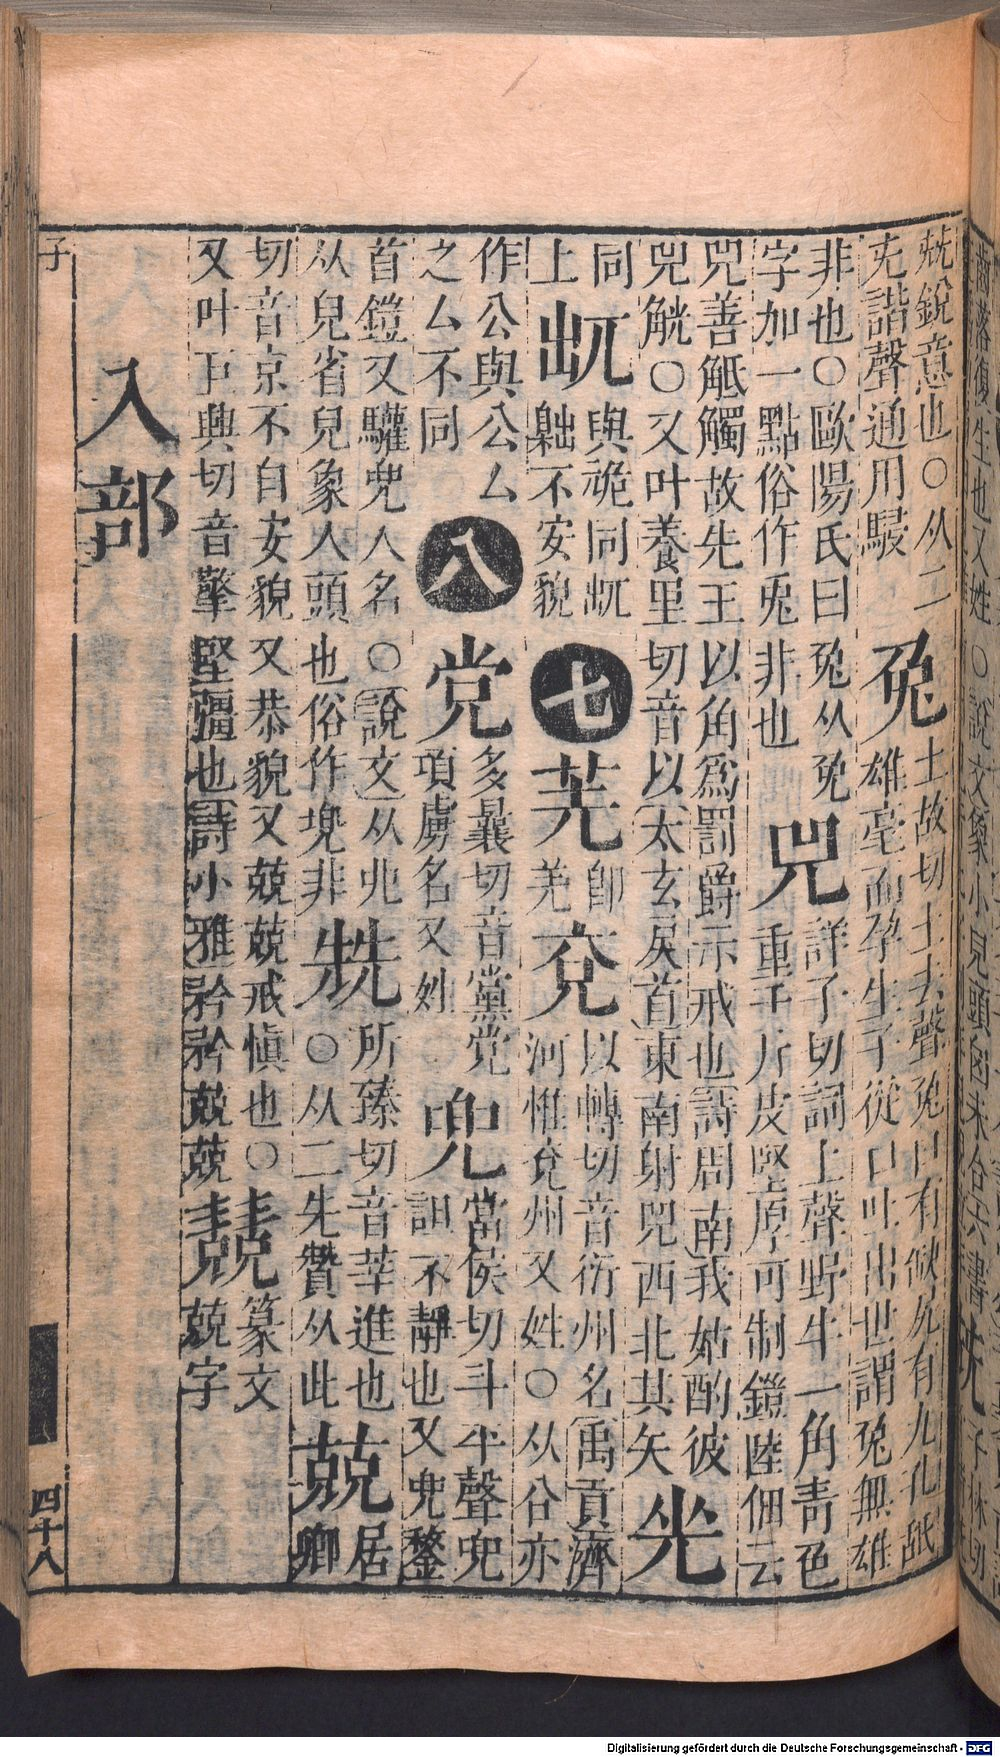 兟銳意也○从二
兂諧聲通用
兔
土故切土去聲兔口有缺尻有九孔舐
雄毫而孕生子從口吐出世謂兔無雄
非也○歐陽氏曰兔从㝹
字加一點俗作兎非也
兕
詳子切詞上聲野牛一角青色
重千斤皮堅厚可制鎧陸佃云
兕善觝觸故先王以角爲罰爵示戒也詩周南我姑酌彼
兕觥○又叶養里切音以太玄戾首東南射兕西北其矢
光
同
上
與硊同
臲不安貌
七
羌
卽
羌
兗
以轉切音衍州名禹貢濟
河惟兗州又姓○从㕣亦
作公與公厶
之厶不同
八
党
多曩切音黨党
項虜名又姓
兜
當侯切斗平聲兜
詛不靜也又兜鍪
首鎧又驩兜人名○說文从𠑹
从皃省皃象人頭也俗作㙇非
兟
所臻切音莘進也
○从二先贊从此
兢
居
卿
切音京不自安貌又恭貌又兢兢戒愼也○
又叶巨興切音擎堅彊也詩小雅矜矜兢兢
篆文
兢字
入部
子
四十八
Digitalisierung gefördert durch die Deutsche Forschungsgemeinschaft - DFG